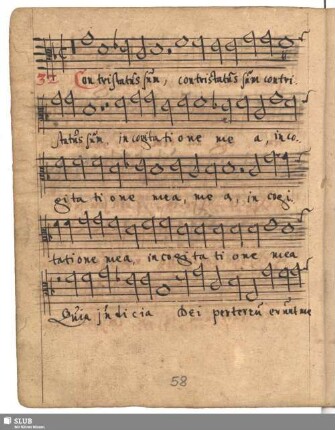 Contristatus sum, contristatus sum contri.
status sum in cogitatione mea, in co.
gitatione mea, mea, in cogi.
tatione mea, in cogitatione mea
Quia judicia Dei perterrent me
58
SLUB